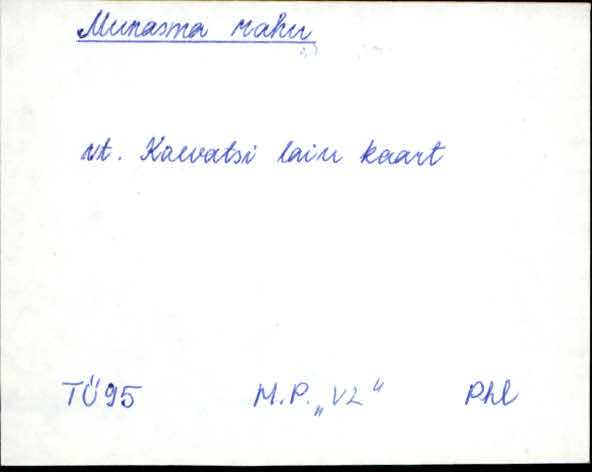 Munasma rahu
vt. Kaevatsi laiu kaart
TÜ95 M.P. „VL“ Phl